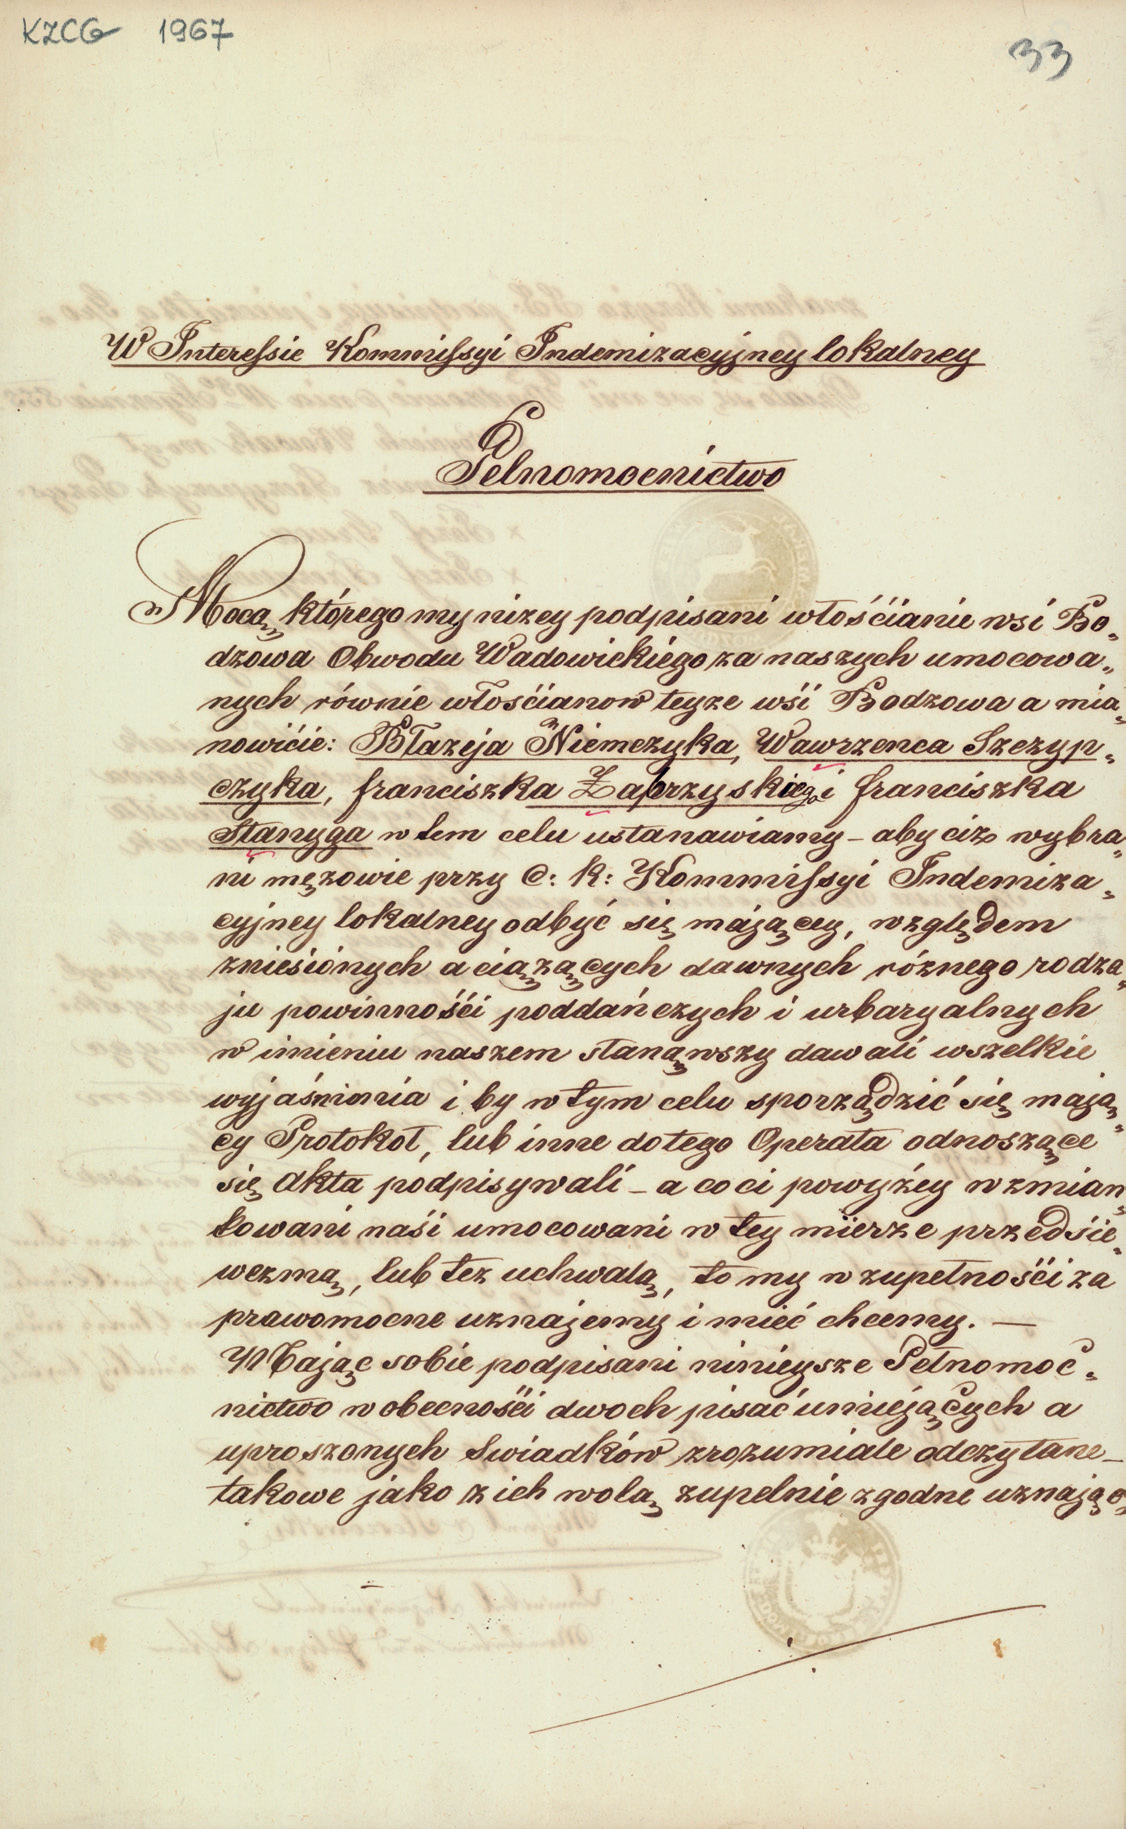 KZCG 1967
33
W Interessie Kommissyi Indemizacyjney lokalney
Pełnomocnictwo
Mocą którego my nizey podpisani włośćianie wsi Bo„
dzowa Obwodu Wadowickiégo za naszych umocowa„
nych równie włośćianow teyze wśi Bodzowa a mia„
nowićie: Błazeja Niemczyka, Wawrzenca Szczyp„
czyka, franciszka Zabrzyskiego i franciszka
Stanyga w tem celu ustanawiamy – aby ciż wybra„
ni mężowie przy C: k: Kommissyi Indemiza„
cyjney lokalney odbyć się mającey, względem
zniesiónych a ciązących dawnych róznego rodza„
ju powinnośći poddańczych i urbaryalnych
w imieniu naszem stanąwszy dawali wszelkie
wyjaśnienia i by w tym celu sporządzić się mają„
cy Protokoł, lub inne do tego Operata odnoszące
się Akta podpisywali – a co ci powyźéy wzmian„
kowani naśi umocowani w tey mierze przedsie„
wezmą, lub tez uchwalą, to my w zupełnośći za
prawomocne uznajemy i mieć chcemy. —
Mając sobie podpisani ninieysze Pełnomoc„
nictwo w obecnośći dwoch pisać umiejących a
uproszonych świadków zrozumiale odczytane –
takowe jako z ich wolą zupełnie zgodne uznają„